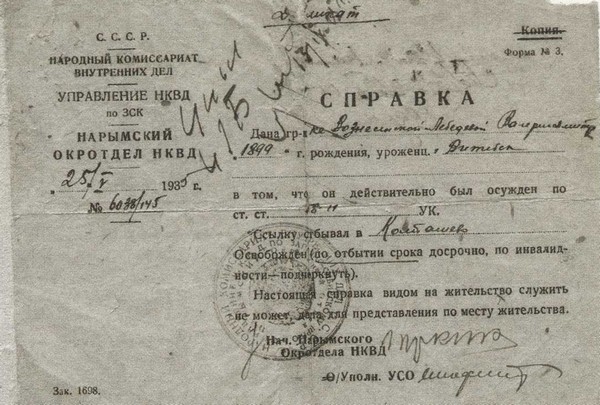 Копия.
Форма № 3.
С. С. С. Р.
НАРОДНЫЙ КОМИССАРИАТ
ВНУТРЕННИХ ДЕЛ
УПРАВЛЕНИЕ НКВД
по ЗСК
НАРЫМСКИЙ
ОКРОТДЕЛ НКВД
25/V 1935 г.
№ 6038/145
СПРАВКА
Дана гр-ке Вознесенской-Лебедевой
1899 г. рождения, уроженц. Витебск
в том, что он действительно был осужден по
ст. ст. УК.
Ссылку отбывал в Колпашево
Освобожден (по отбытии срока досрочно, по инвалид-
ности—подчеркнуть).
Настоящая справка видом на жительство служить
не может, дана для представления по месту жительства.
Нач. Нарымского
Окротдела НКВД
О/Уполн. УСО
Зак. 1698.